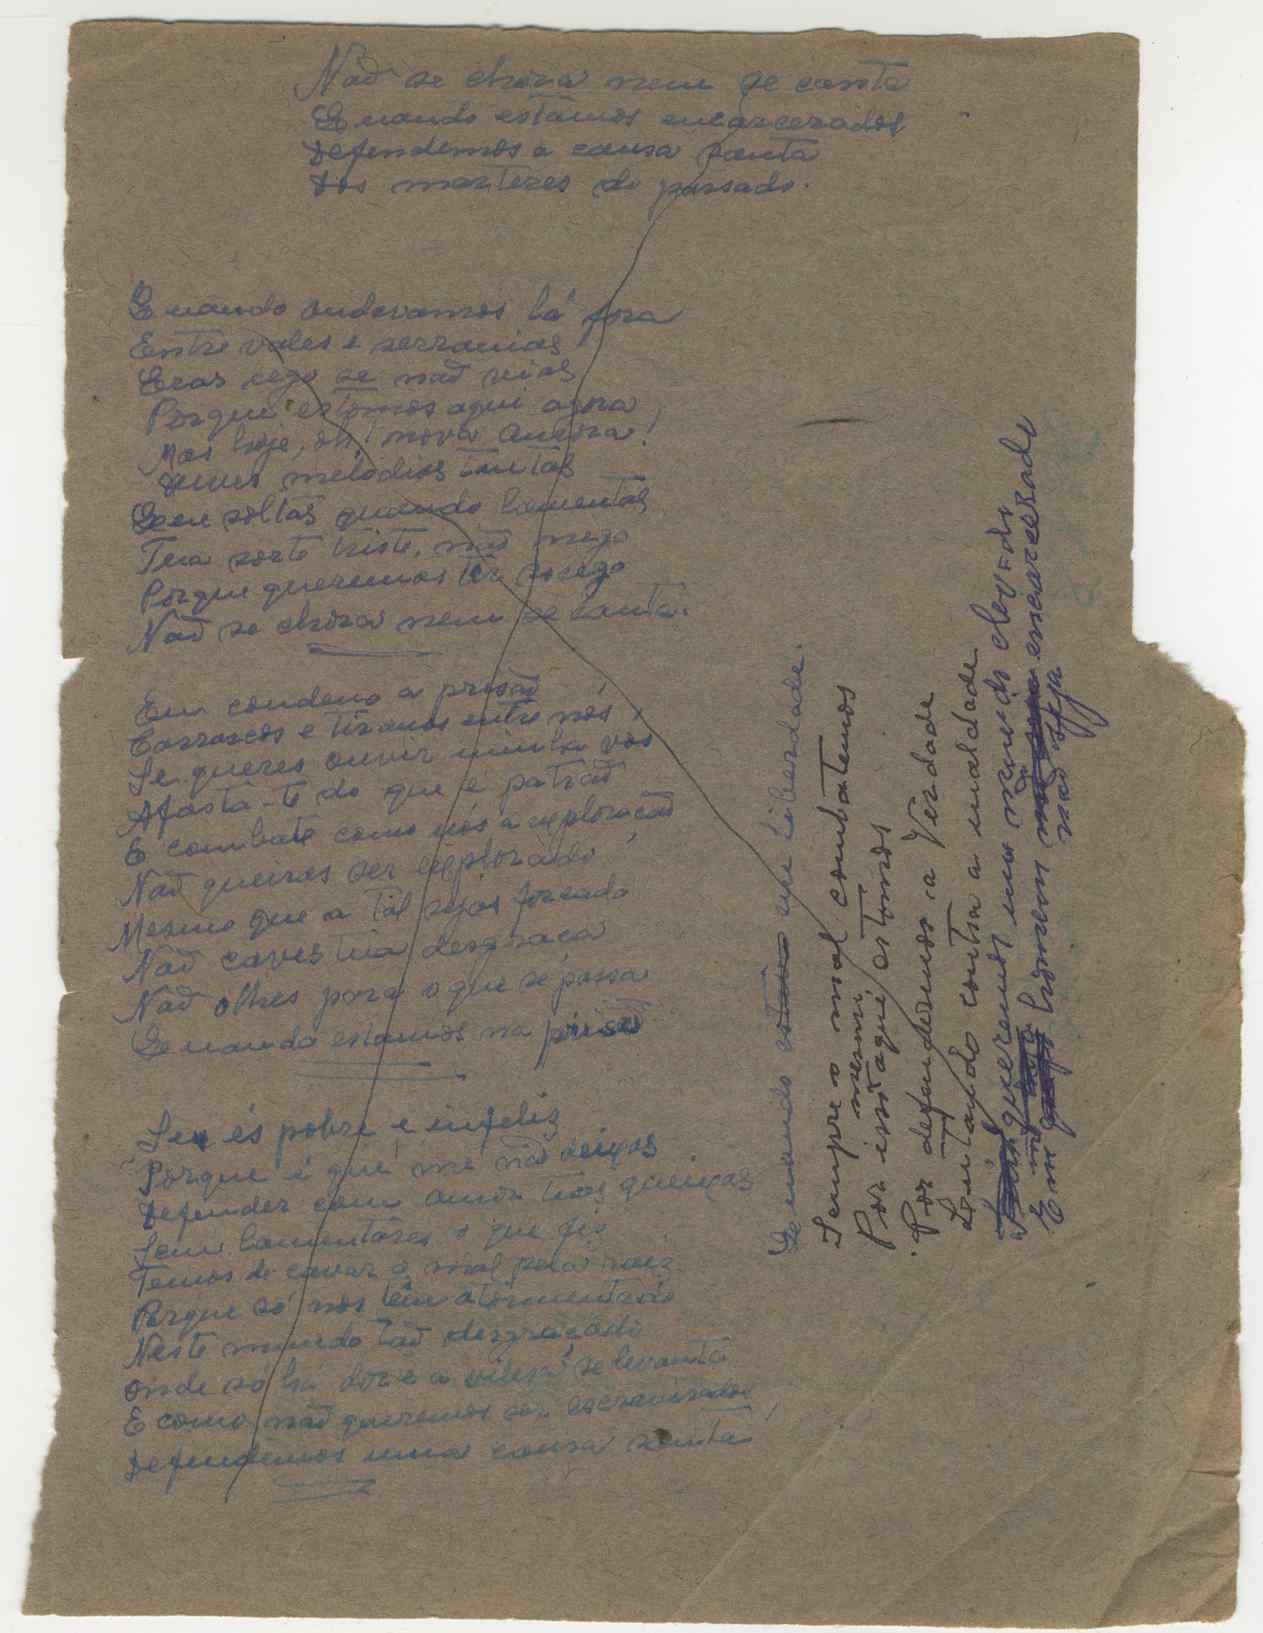 Não se chora nem se canta
Quando estamos encarcerados
Defendemos a causa santa
Dos marteres do passado.
Quando andavamos lá fora
Entre vales e serranias
Eras cego se não vias
Porque estamos aqui agora
Mas hoje, oh! nova aurora!
melodias tantas
soltas quando lamentas
Tua sorte triste, não nego
Porque queremos ter socego
Não se chora nem se canta.
Eu condeno a prisão
Carrascos e tiranos entre nós,
Se queres ouvir minha vós
Afasta-te do que é patrão
E combate como nós a exploração
Não queiras ser explorado
Mesmo que a tal sejas forçado
Não caves tua desgraça
Não olhes para o que se passa
Quando estamos na prisão
Se és pobre e infeliz
Porque é que me não deixas
Defender com amor tuas queixas
Sem lamentares o que fiz
Temos de cavar o mal pela raiz
Porque só nos tem atormentado
Neste mundo tão desgraçado
Onde só há dor e a se levanta
E como não queremos ser escravisados
Defendemos uma causa santa
Quando em liberdade.
Sempre o mal combatemos
mesmo
Por isso aqui estamos
Por defendermos a Verdade
Lutando contra a maldade
queremos um mundo
Em homem encarcerado
não seja